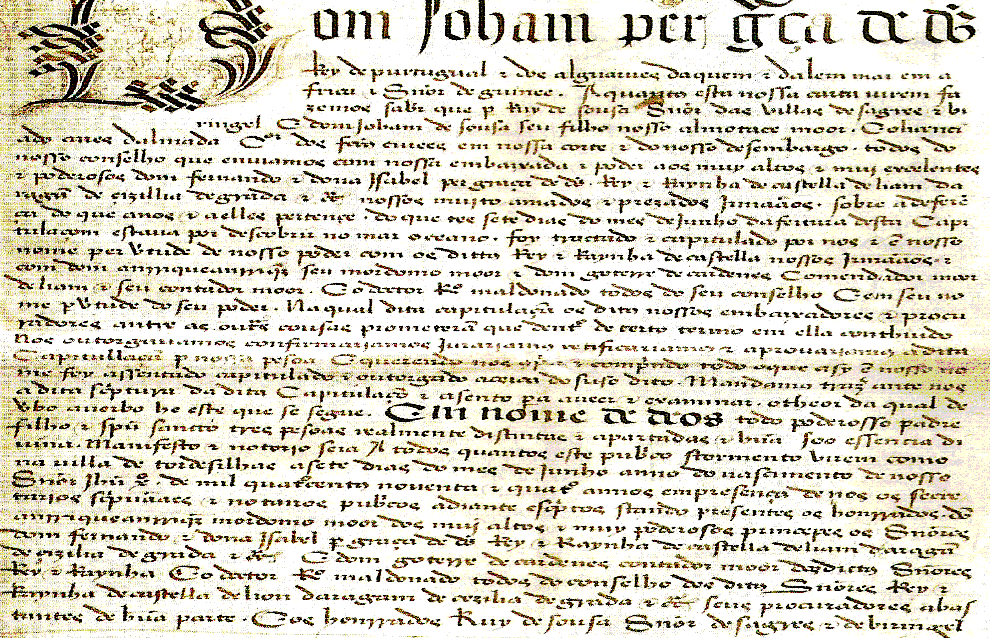 Dom Joham per gça de ds
Rey de purtugual e dos alguarues daquem e dalem mar em a
frica e Sñor de guinee. A quantos esta nossa carta virem fa
zemos saber que per Ruy de sousa Sñor das villas de sagres e bi
ringel E dom Joham de sousa seu filho nosso almotace moor. E o licenci
ado aires dalmada em nossa corte e do nosso desembargo. todos do
nosso conselho que enuiamos com nossa embaixada e poder aos muy altos e muy excelentes
e poderosos dom fernando e dona Isabel per graça de ds. Rey e Raynha de castella de liam da
de cizillia de grada e nossos muito amados e prezados Irmaãos. sobre a deferē
ça do que anos e a elles pertençe do que tee sete dias do mes de Junho da feitura desta Capi
tulaçom estaua por descobrir no mar oceano. foy trautado e capitulado por nos e ē nosso
nome per vtude de nosso poder com os dittos Rey e Raynha de castella nossos Irmaãos e
com dom anrrique anrriqz seu mordomo moor e dom goterre de cardenes Comendador mor
de liam e seu contador moor. E o doctor Ro maldonado todos do seu conselho E em seu no
me p vtude do seu poder. Na qual dita capitulaçā os ditos nossos embaixadores e procu
radores antre as outras cousas prometerā que dentro de certo termo em ella conthiudo
Nos outorgariamos confirmariamos Jurariamos retificariamos e aprouariamos a dita
Capitullaçā p nossa pesoa E querendo nos comprir todo o que asy ē nosso no
me foy assentado capitulado e outorgado acerca do suso dito. Mandamos trazer ante nos
a dita scpritura da dita Capitulaçō e asento pa a veer e examinar. o theor da qual de
vbo a uerbo he este que se segue. Em nome de deos todo poderosso padre
filho e spū sancto tres pesoas realmente distintas e apartadas e hūa soo essencia di
uina. Manifesto e notorio seja A todos quantos este pubco stormento virem como
na villa de tordesilhas a sete dias do mes de Junho anno do nascimento de nosso
Sñor Ihū xo de mil quatrocentos nouenta e quatro annos em presença de nos os secre
tarios scpriuāaes e notarios pubcos adiante esptos stando presentes os honrrados dō
anrrique anrriqz mordomo moor dos muj altos e muy poderosos principes os Señores
dom fernando e dona Isabel p graça de ds Rey e Raynha de castella de liam daragā
de cizilia de grada e E dom goterre de cardenes contador moor dos dictos Señores
Rey e Raynha E o doctor Ro maldonado todos do conselho dos ditos Señores Rey e
Raynha de castella de lion daragam de cezilia de grada e seus procuradores abas
tantes de hūa parte. E os honrrados Ruy de sousa Señor de sagres e de biringel